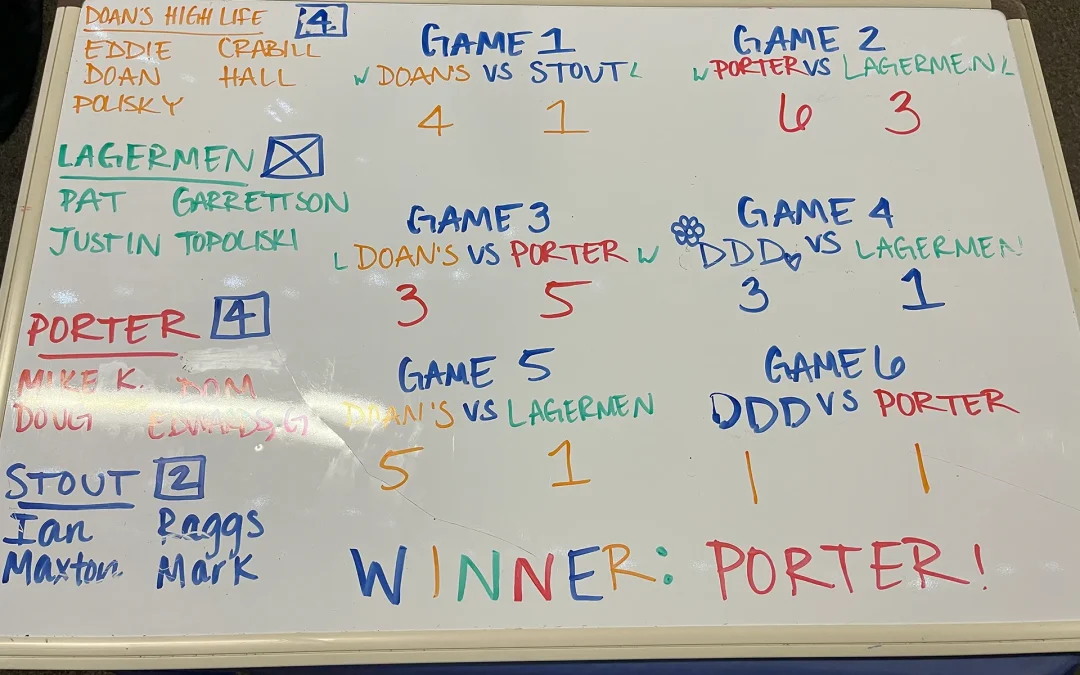 DOAN'S HIGH LIFE 4
EDDIE CRABILL
DOAN HALL
POLISKY
LAGERMEN
PAT GARRETTSON
JUSTIN TOPOLISKI
PORTER 4
MIKE K. DOM
DOUG EDWARDS, G
STOUT 2
Ian Raggs
Maxton Mark
GAME 1
W DOAN'S VS STOUT L
4 1
GAME 2
W PORTER VS LAGERMEN L
6 3
GAME 3
L DOAN'S VS PORTER W
3 5
GAME 4
DDD VS LAGERMEN
3 1
GAME 5
DOAN'S VS LAGERMEN
5 1
GAME 6
DDD VS PORTER
1 1
WINNER: PORTER!